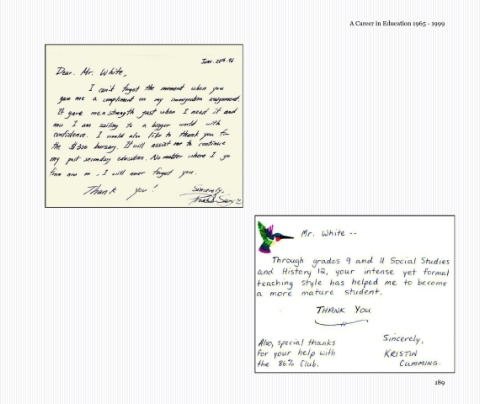 A Career in Education 1965 - 1999
June 20th 96
Dear. Mr. White,
I can't forget the moment when you
gave me a compliment on my immigration assignment.
It gave me strength just when I need it and
now I am sailing to a bigger world with
confidence. I would also like to thank you for
the $300 bursary. It will assist me to continue
my post secondary education. No matter where I go
from now on, I will never forget you.
Thank you!
Sincerely,
Mr. White --
Through grades 9 and 11 Social Studies
and History 12, your intense yet formal
teaching style has helped me to become
a more mature student.
THANK YOU
Also, special thanks
for your help with
the 86% Club.
Sincerely,
KRISTIN
CUMMING.
189